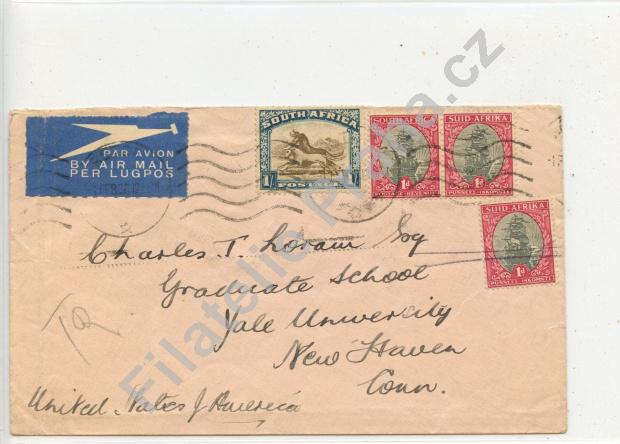 PAR AVION
BY AIR MAIL
PER LUGPOS
SOUTH AFRICA
1/-
POSTAGE
SOUTH AFRICA
1D
POSTAGE REVENUE
SUID-AFRIKA
1D
POSSEEL-INKOMSTE
SUID-AFRIKA
1D
POSSEEL-INKOMSTE
Charles T. Loram Esq
Graduate School
Yale University
New Haven
Conn.
United States of America
Filatelie Praha.cz